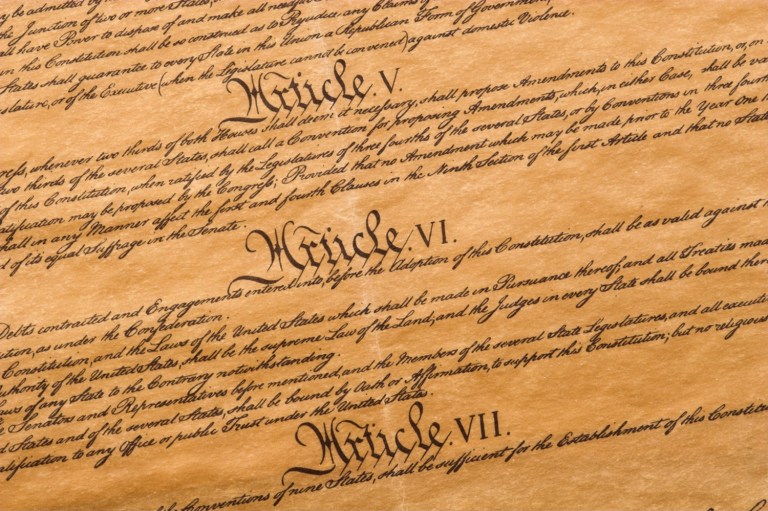 y be admitted by
the Junction of two or more States,
all have Power to dispose of and make all need
in this Constitution shall be so construed as to Prejudice any Claims
States shall guarantee to every State in this Union a Republican Form of Government,
islature, or of the Executive (when the Legislature cannot be convened) against domestic Violence.
Article. V.
gress, whenever two thirds of both Houses shall deem it necessary, shall propose Amendments to this Constitution, or, on
two thirds of the several States, shall call a Convention for proposing Amendments, which, in either Case, shall be va
of this Constitution, when ratified by the Legislatures of three fourths of the several States, or by Conventions in three fourth
atification may be proposed by the Congress; Provided that no Amendment which may be made prior to the Year One
shall in any Manner affect the first and fourth Clauses in the Ninth Section of the first Article; and that no State
d of its equal Suffrage in the Senate.
Article. VI.
Debts contracted and Engagements entered into, before the Adoption of this Constitution, shall be as valid against
ution, as under the Confederation.
Constitution, and the Laws of the United States which shall be made in Pursuance thereof; and all Treaties mad
uthority of the United States, shall be the supreme Law of the Land; and the Judges in every State shall be bound there
aws of any State to the Contrary notwithstanding.
e Senators and Representatives before mentioned, and the Members of the several State Legislatures, and all execut
d States and of the several States, shall be bound by Oath or Affirmation, to support this Constitution; but no religious
alification to any Office or public Trust under the United States.
Article. VII.
Conventions of nine States, shall be sufficient for the Establishment of this Constitu